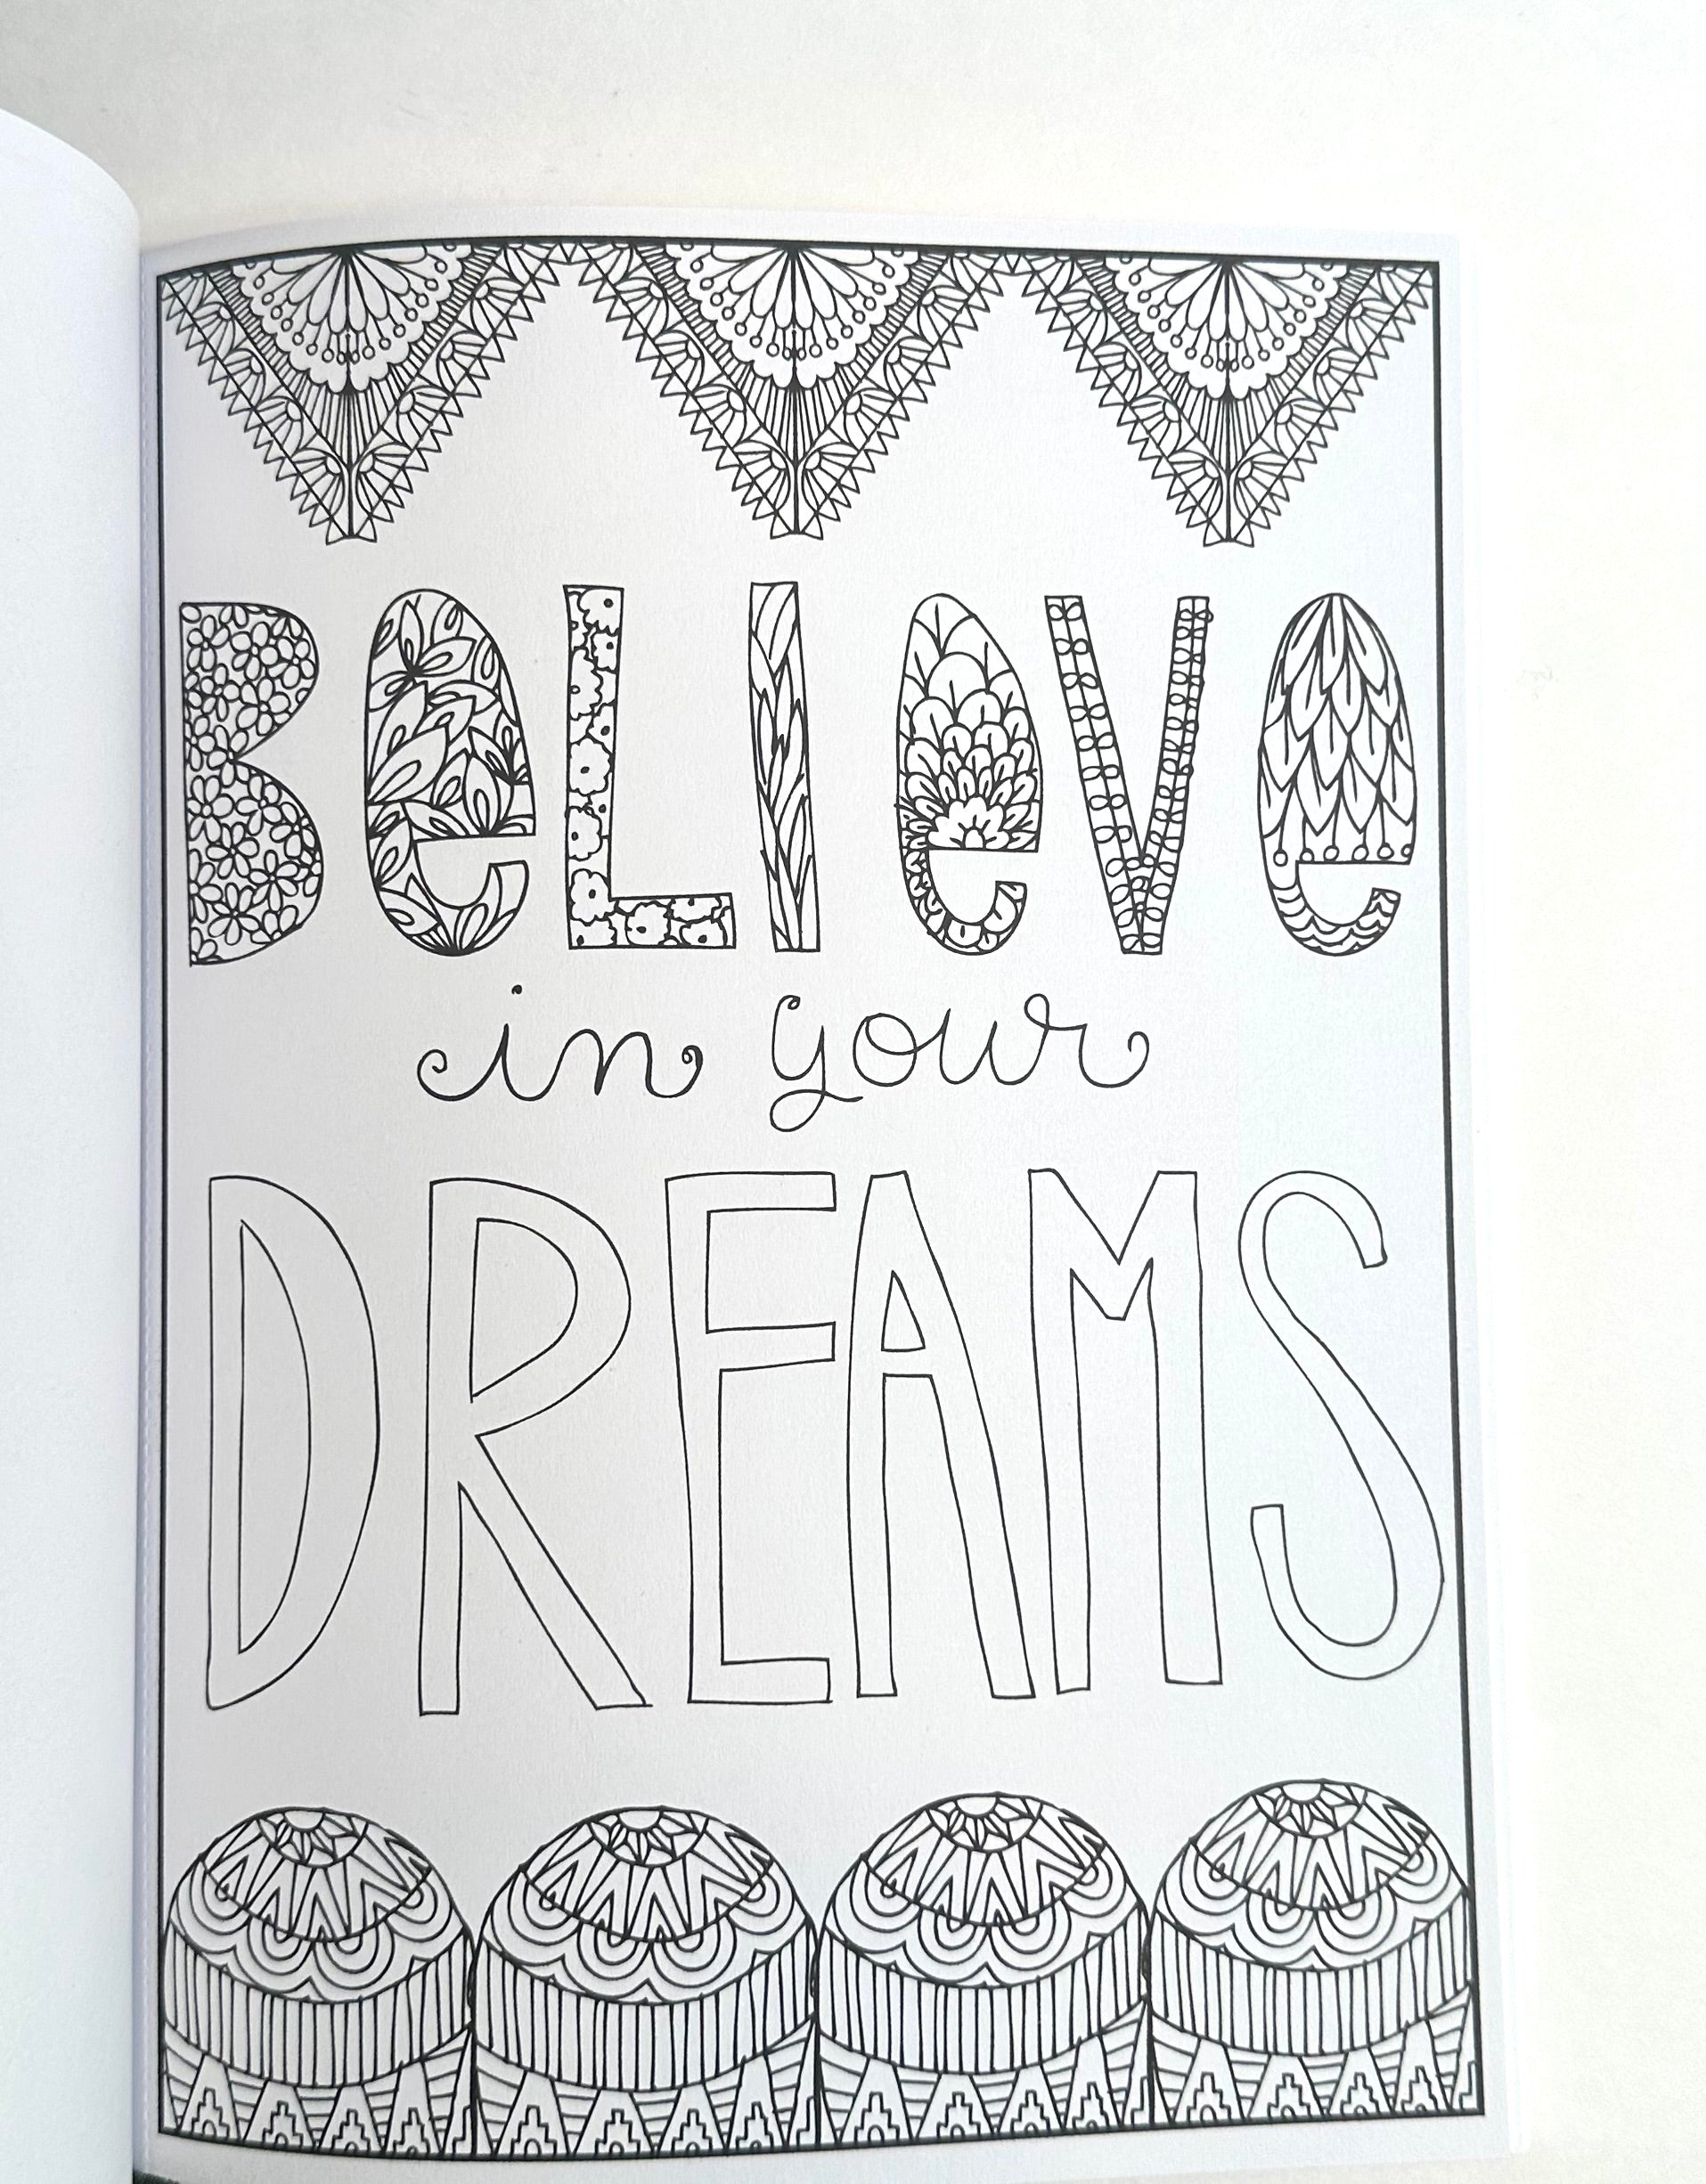 BeLIeVe
in your
DREAMS